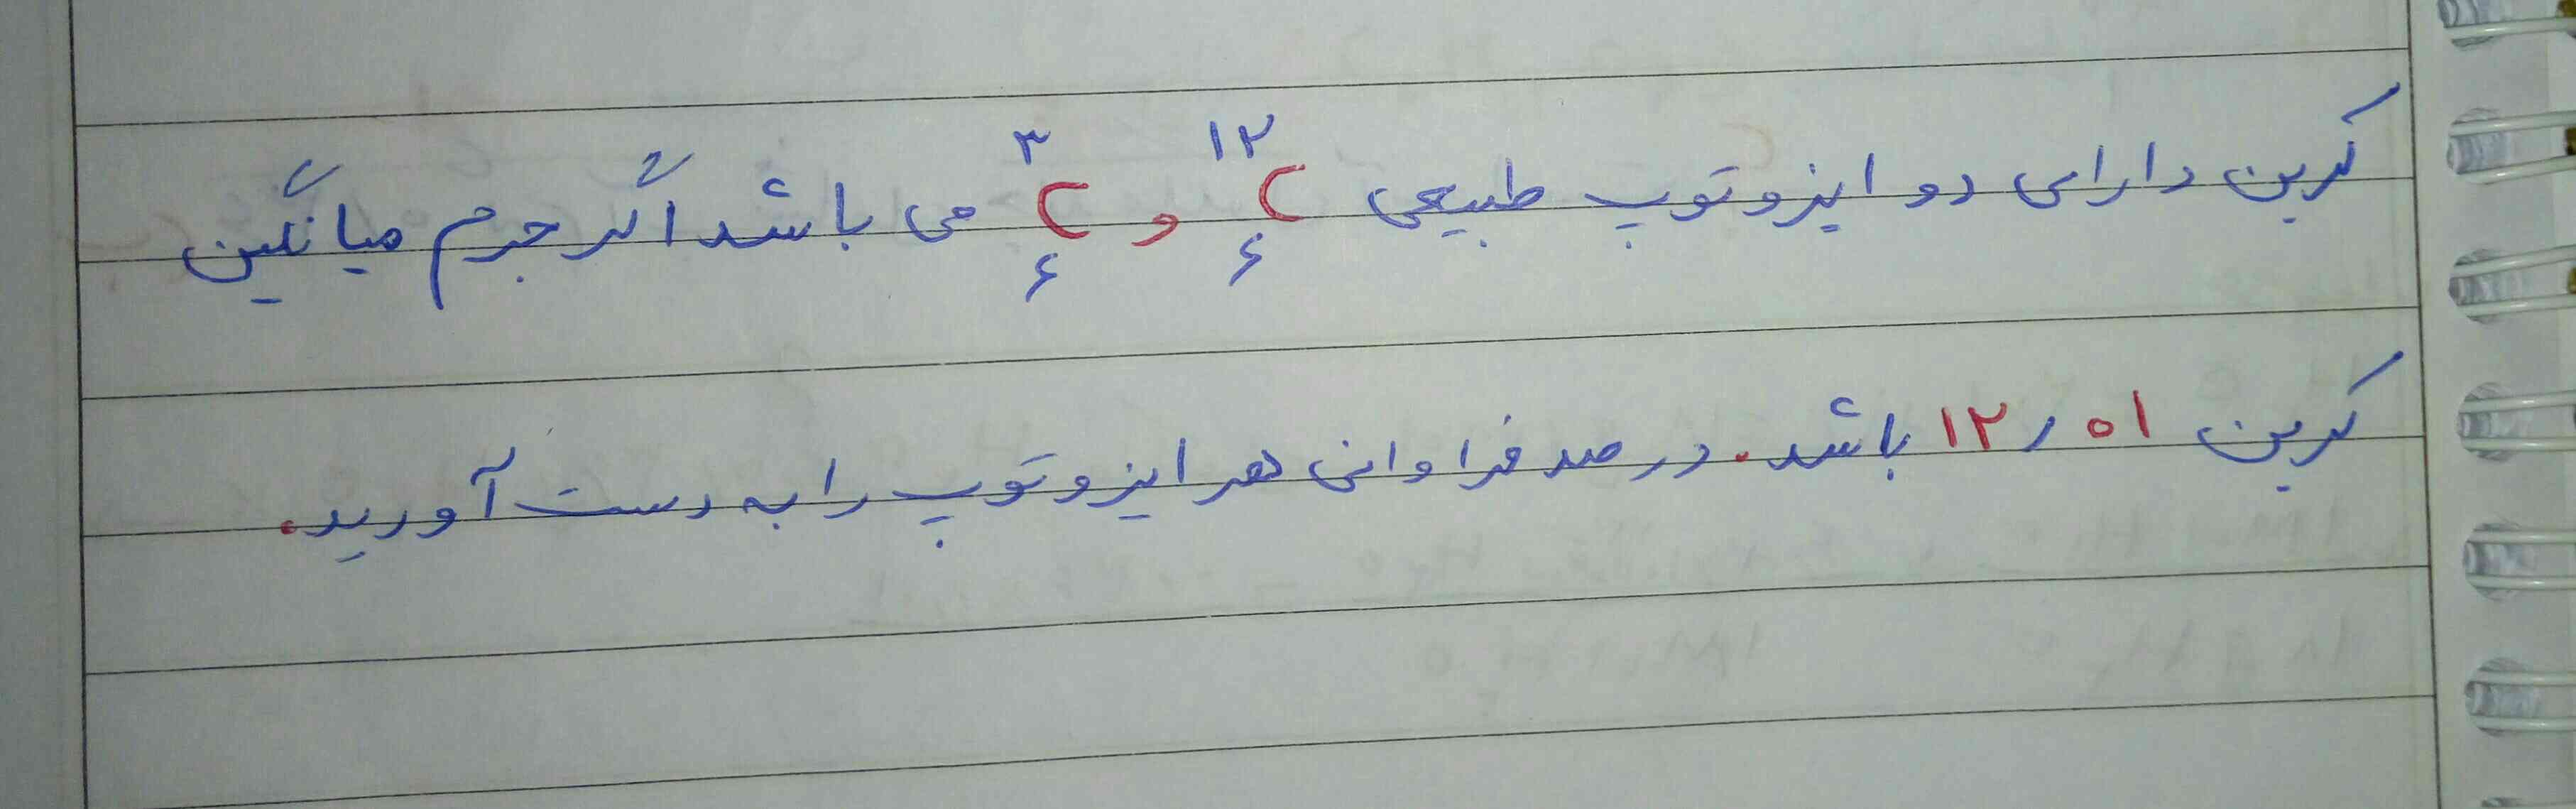 کربن دارای دو ایزوتوپ طبیعی ¹²₆C و ³₆C می باشد اگر جرم میانگین
کربن ۱۲٫۰۱ باشد. درصد فراوانی هر ایزوتوپ را به دست آورید.